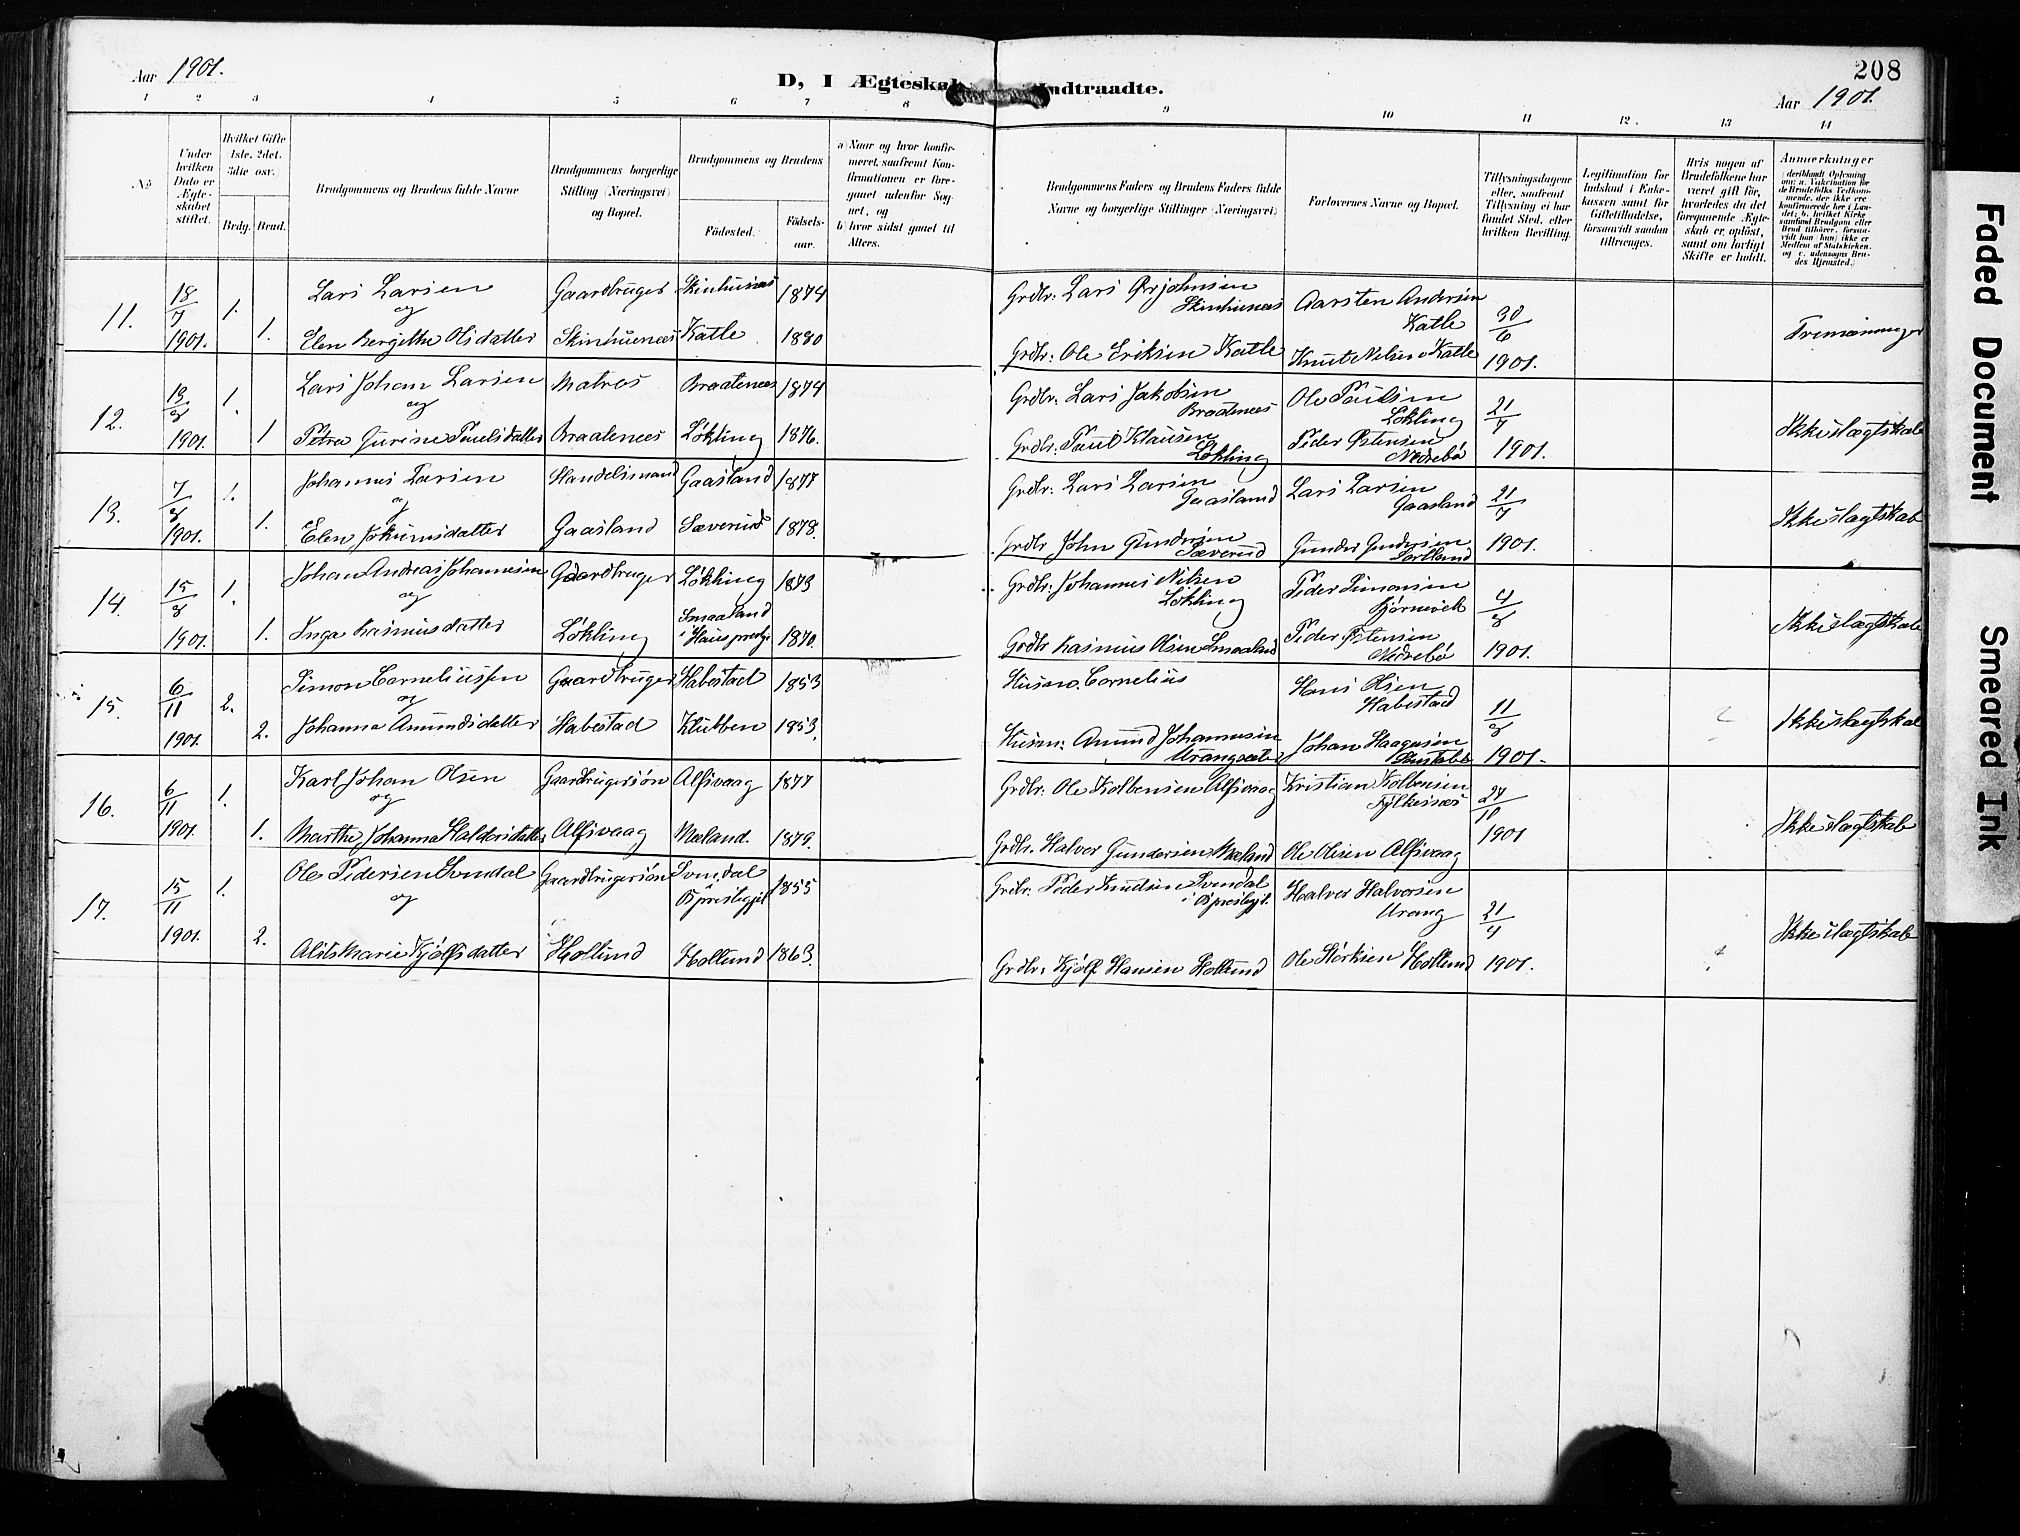 Aar 1901.
D, I Ægteskab Indtraadte.
208
Aar 1901.
1 2 3 4 5 6 7 8 9 10 11 12. 13 14
No
Under hvilken Dato er Ægteskabet stiftet.
Hvilket Gifte (1ste, 2det, 3die osv.)
Brdg. Brud.
Brudgommens og Brudens fulde Navne
Brudgommens borgerlige Stilling (Næringsvei) og Bopæl.
Brudgommens og Brudens
Födested.
Födselsaar.
a) Naar og hvor konfirmeret, saafremt Konfirmationen er foregaaet udenfor Sognet, og
b) hvor sidst gaaet til Alters.
Brudgommens Faders og Brudens Faders fulde Navne og borgerlige Stillinger (Næringsvei)
Forlovernes Navne og Bopæl.
Tillysningsdagene eller, saafremt Tillysning ei har fundet Sted, efter hvilken Bevilling.
Legitimation for Indskud i Enkekassen samt for Giftetilladelse, forsaavidt saadan tiltrænges.
Hvis nogen af Brudefolkene har været gift før, hvorledes da det foregaaende Ægteskab er opløst, samt om lovligt Skifte er holdt.
Anmerkninger
11. 18/7 1901. 1. 1.
Lars Larsen
og
Elen Bergithe Olsdatter
Gaardbruger
Skinhuenæs
Skinhusnæs 1874
Katle 1880
Grdbr: Lars Ørjohnsen
Skinhusnæs
Grdbr: Ole Eriksen Katle
Aarsten Andersen
Katle
Knut Nilsen Katle
30/6 1901.
Tremænninger
12. 13/8 1901. 1. 1
Lars Johan Larsen
og
Petra Gurine Poulsdatter
Matros
Braatenæs
Braatenæs 1874
Løkling 1876.
Grdbr: Lars Jakobsen
Braatenæs
Grdbr: Poul Klausen
Løkling
Ole Poulsen
Løkling
Peder Østensen
Nedrebø
21/7 1901.
Ikke slægtskab
13. 7/8 1901. 1. 1.
Johannes Larsen
og
Elen Johnnsdatter
Handelsmand
Gaasland
Gaasland 1877
Sæverud 1878.
Grdbr: Lars Larsen
Gaasland
Grdbr John Gundersen
Sæverud
Lars Larsen
Gaasland
Gunder Gundersen
21/7 1901.
Ikke slægtskab
14. 15/8 1901. 1. 1.
Johan Andreas Johannesen
og
Inga Rasmusdatter
Gaardbruger
Løkling
Løkling 1873
Smaaland
i Haus prestgj 1870.
Grdbr: Johannes Nilsen
Løkling
Grdbr Rasmus Olsen Smaaland
Peder Simonsen
Bjørnevik
Peder Østensen
Nedrebø
4/8 1901.
Ikke slægtskab
15. 6/11 1901. 2. 2.
Simon Corneliussen
og
Johanna Amundsdatter
Gaardbruger
Habestad
Habestad 1853
Klubben 1853.
Husm. Cornelius
Husm: Amund Johannesen
Urangsæter
Hans Olsen
Habestad
Johan Haagensen
11/8 1901.
Ikke slægtskab
16. 6/11 1901. 1. 1.
Karl Johan Olsen
og
Marthe Johanna Haldorsdatter
Gaardbrugersøn
Alfsvaag
Alfsvaag 1877
Mæland. 1879.
Grdbr: Ole Kolbensen Alfsvaag
Grdbr: Halvor Gundersen Mæland
Kristian Kolbensen
Fylkesnæs
Ole Olsen Alfsvaag
27/10 1901
Ikke slægtskab
17. 15/11 1901. 1. 2.
Ole Pedersen Svendal
og
Alits Marie Kjølfsdatter
Gaardbrugersøn
Hollund
Svendal 1855
Hollund 1863.
Grdbr: Peder Knudsen Svendal
Grdbr: Kjølf Hansen Hollund
Halvor Halvorsen
Urang
Ole Størksen Hollund
21/4 1901.
Ikke slægtskab
Faded Document
Smeared Ink